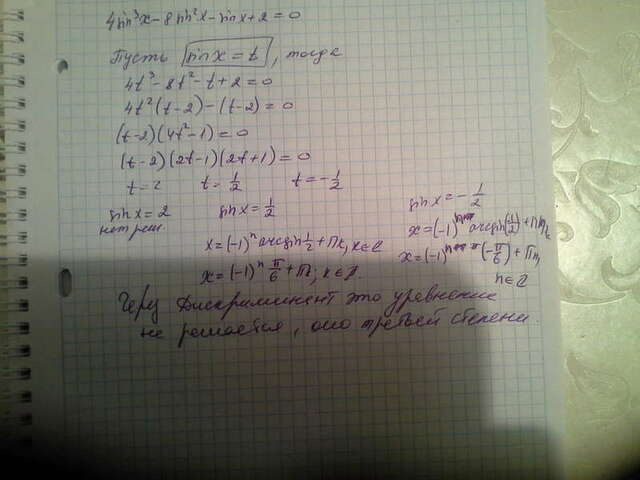 4sin³x - 8sin²x - sinx + 2 = 0
Пусть sinx = t, тогда
4t³ - 8t² - t + 2 = 0
4t²(t-2) - (t-2) = 0
(t-2)(4t²-1) = 0
(t-2)(2t-1)(2t+1) = 0
t = 2 t = 1/2 t = -1/2
sinx = 2 sinx = 1/2 sinx = -1/2
нет реш.
x = (-1)ⁿ arcsin 1/2 + Пk, k∈Z
x = (-1)ⁿ π/6 + П, k∈Z.
x = (-1) arcsin(1/2) + П
x = (-1) (-π/6) + Пn,
n∈Z
Через Дискриминант это уравнение
не решается, оно третьей степени.